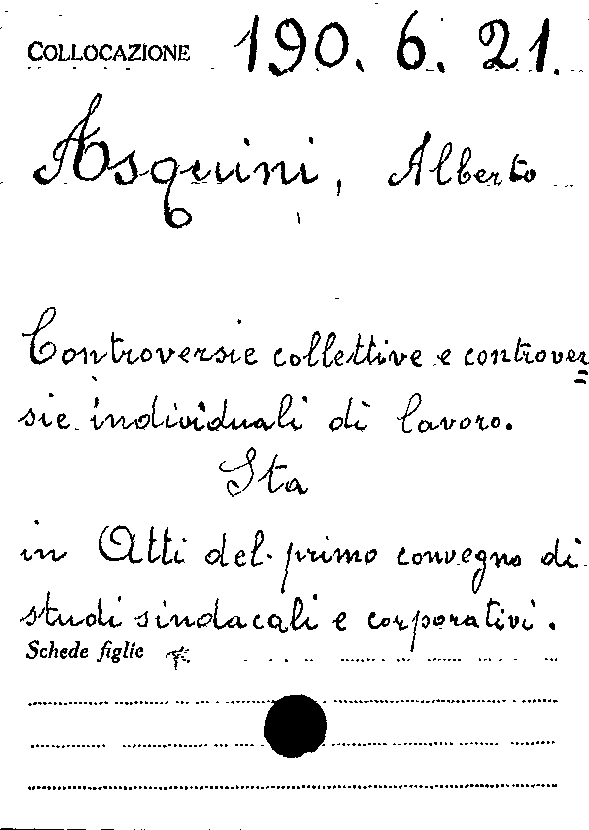 COLLOCAZIONE 190. 6. 21.
Asquini, Alberto
Controversie collettive e controver=
sie individuali di lavoro.
Sta
in Atti del primo convegno di
studi sindacali e corporativi.
Schede figlie